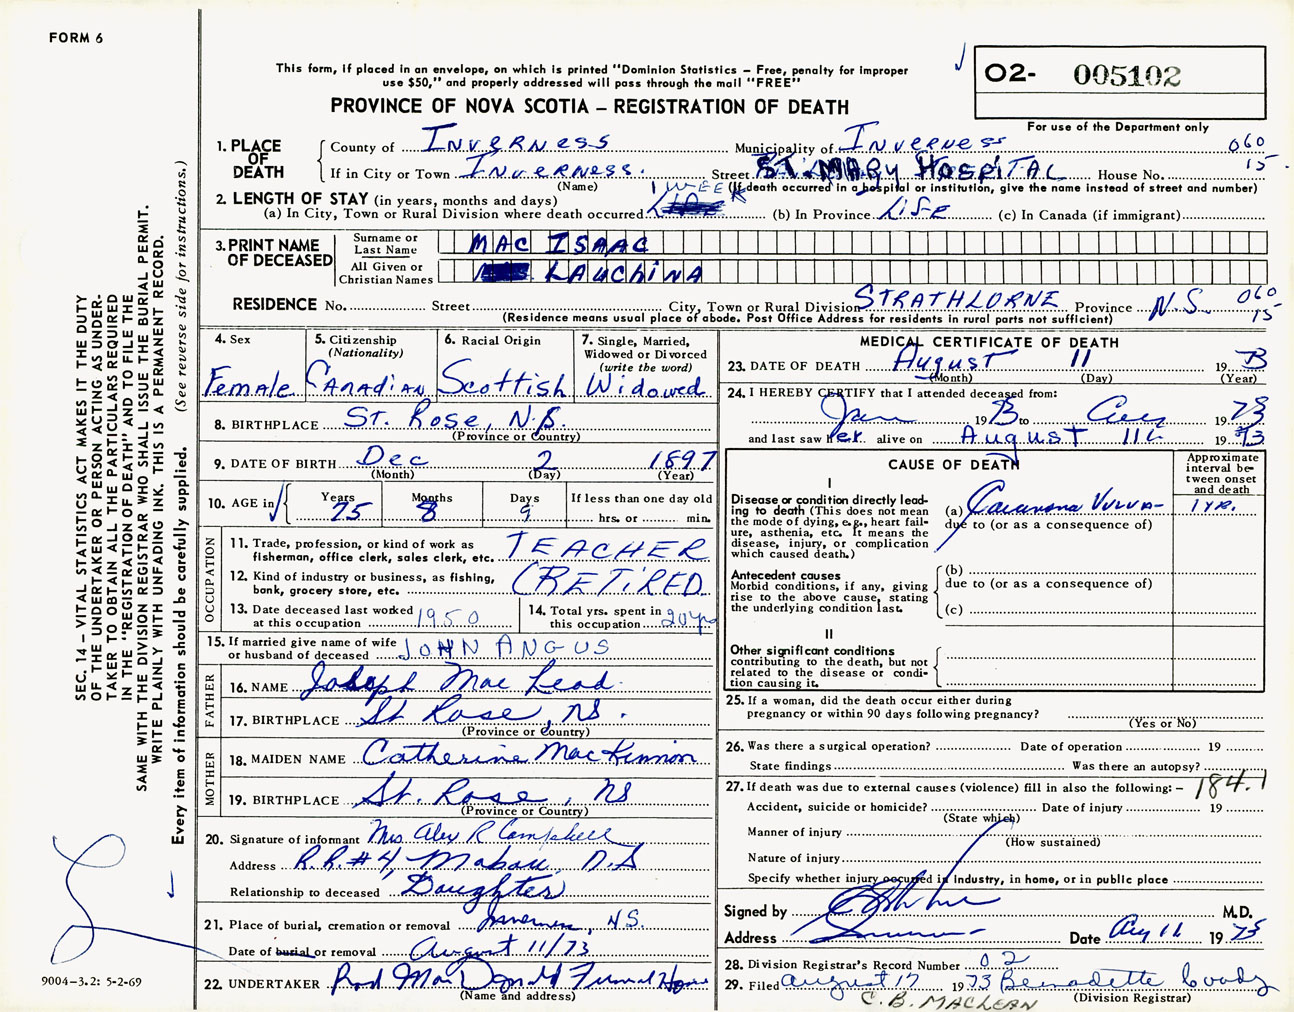 FORM 6
This form, if placed in an envelope, on which is printed "Dominion Statistics – Free, penalty for improper
use $50," and properly addressed will pass through the mail "FREE"
PROVINCE OF NOVA SCOTIA – REGISTRATION OF DEATH
02- 005102
For use of the Department only
SEC. 14 – VITAL STATISTICS ACT MAKES IT THE DUTY
OF THE UNDERTAKER OR PERSON ACTING AS UNDER-
TAKER TO OBTAIN ALL THE PARTICULARS REQUIRED
IN THE "REGISTRATION OF DEATH" AND TO FILE THE
SAME WITH THE DIVISION REGISTRAR WHO SHALL ISSUE THE BURIAL PERMIT.
WRITE PLAINLY WITH UNFADING INK. THIS IS A PERMANENT RECORD.
Every item of information should be carefully supplied. (See reverse side for instructions.)
9004-3.2: 5-2-69
1. PLACE OF DEATH
County of INVERNESS Municipality of INVERNESS 060
If in City or Town INVERNESS. Street ST. MARY HOSPITAL House No. 15.
(Name) (If death occurred in a hospital or institution, give the name instead of street and number)
2. LENGTH OF STAY (in years, months and days)
(a) In City, Town or Rural Division where death occurred 1 WEEK (b) In Province LIFE (c) In Canada (if immigrant)
3. PRINT NAME OF DECEASED
Surname or Last Name MAC ISAAC
All Given or Christian Names LAUCHINA
RESIDENCE No. Street City, Town or Rural Division STRATHLORNE Province N.S. 060 15
(Residence means usual place of abode. Post Office Address for residents in rural parts not sufficient)
4. Sex Female
5. Citizenship (Nationality) Canadian
6. Racial Origin Scottish
7. Single, Married, Widowed or Divorced (write the word) Widowed
8. BIRTHPLACE St. Rose, N.S.
(Province or Country)
9. DATE OF BIRTH Dec 2 1897
(Month) (Day) (Year)
10. AGE in Years 75 Months 8 Days 9 If less than one day old
hrs. or min.
OCCUPATION
11. Trade, profession, or kind of work as fisherman, office clerk, sales clerk, etc. TEACHER
12. Kind of industry or business, as fishing, bank, grocery store, etc. (RETIRED
13. Date deceased last worked at this occupation 1950
14. Total yrs. spent in this occupation 20 yrs
15. If married give name of wife or husband of deceased JOHN ANGUS
FATHER
16. NAME Joseph Mac Leod
17. BIRTHPLACE St Rose, NS.
(Province or Country)
MOTHER
18. MAIDEN NAME Catherine MacKinnon
19. BIRTHPLACE St. Rose, NS
(Province or Country)
20. Signature of informant Mrs Alex R Campbell
Address R.R.#4, Mabou, N.S
Relationship to deceased Daughter
21. Place of burial, cremation or removal Inverness, N.S.
Date of burial or removal August 11/73
22. UNDERTAKER Rod MacDonald Funeral Home
(Name and address)
MEDICAL CERTIFICATE OF DEATH
23. DATE OF DEATH August 11 1973
(Month) (Day) (Year)
24. I HEREBY CERTIFY that I attended deceased from:
Jan 1973 to Aug 1973
and last saw her alive on August 11 1973
CAUSE OF DEATH
Approximate interval between onset and death
I
Disease or condition directly lead-
ing to death (This does not mean
the mode of dying, e.g., heart fail-
ure, asthenia, etc. It means the
disease, injury, or complication
which caused death.)
(a) Carcinoma VULVA- 1 YR.
due to (or as a consequence of)
Antecedent causes
Morbid conditions, if any, giving
rise to the above cause, stating
the underlying condition last.
(b)
due to (or as a consequence of)
(c)
II
Other significant conditions
contributing to the death, but not
related to the disease or condi-
tion causing it.
25. If a woman, did the death occur either during
pregnancy or within 90 days following pregnancy?
(Yes or No)
26. Was there a surgical operation? Date of operation 19
State findings Was there an autopsy?
27. If death was due to external causes (violence) fill in also the following: – 184.1
Accident, suicide or homicide? Date of injury 19
(State which)
Manner of injury
(How sustained)
Nature of injury
Specify whether injury occurred in industry, in home, or in public place
Signed by M.D.
Address Date Aug 11 1973
28. Division Registrar's Record Number 02
29. Filed August 17 1973 Bernadette Coady
(Division Registrar)
C. B. MACLEAN